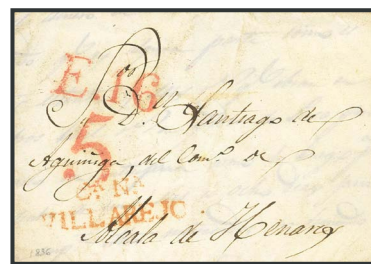 E. 16
Dn Santiago de
5
Aguiñiga, del Come. de
Ca. Na.
VILLAREJO
Alcalá de Henares
1836